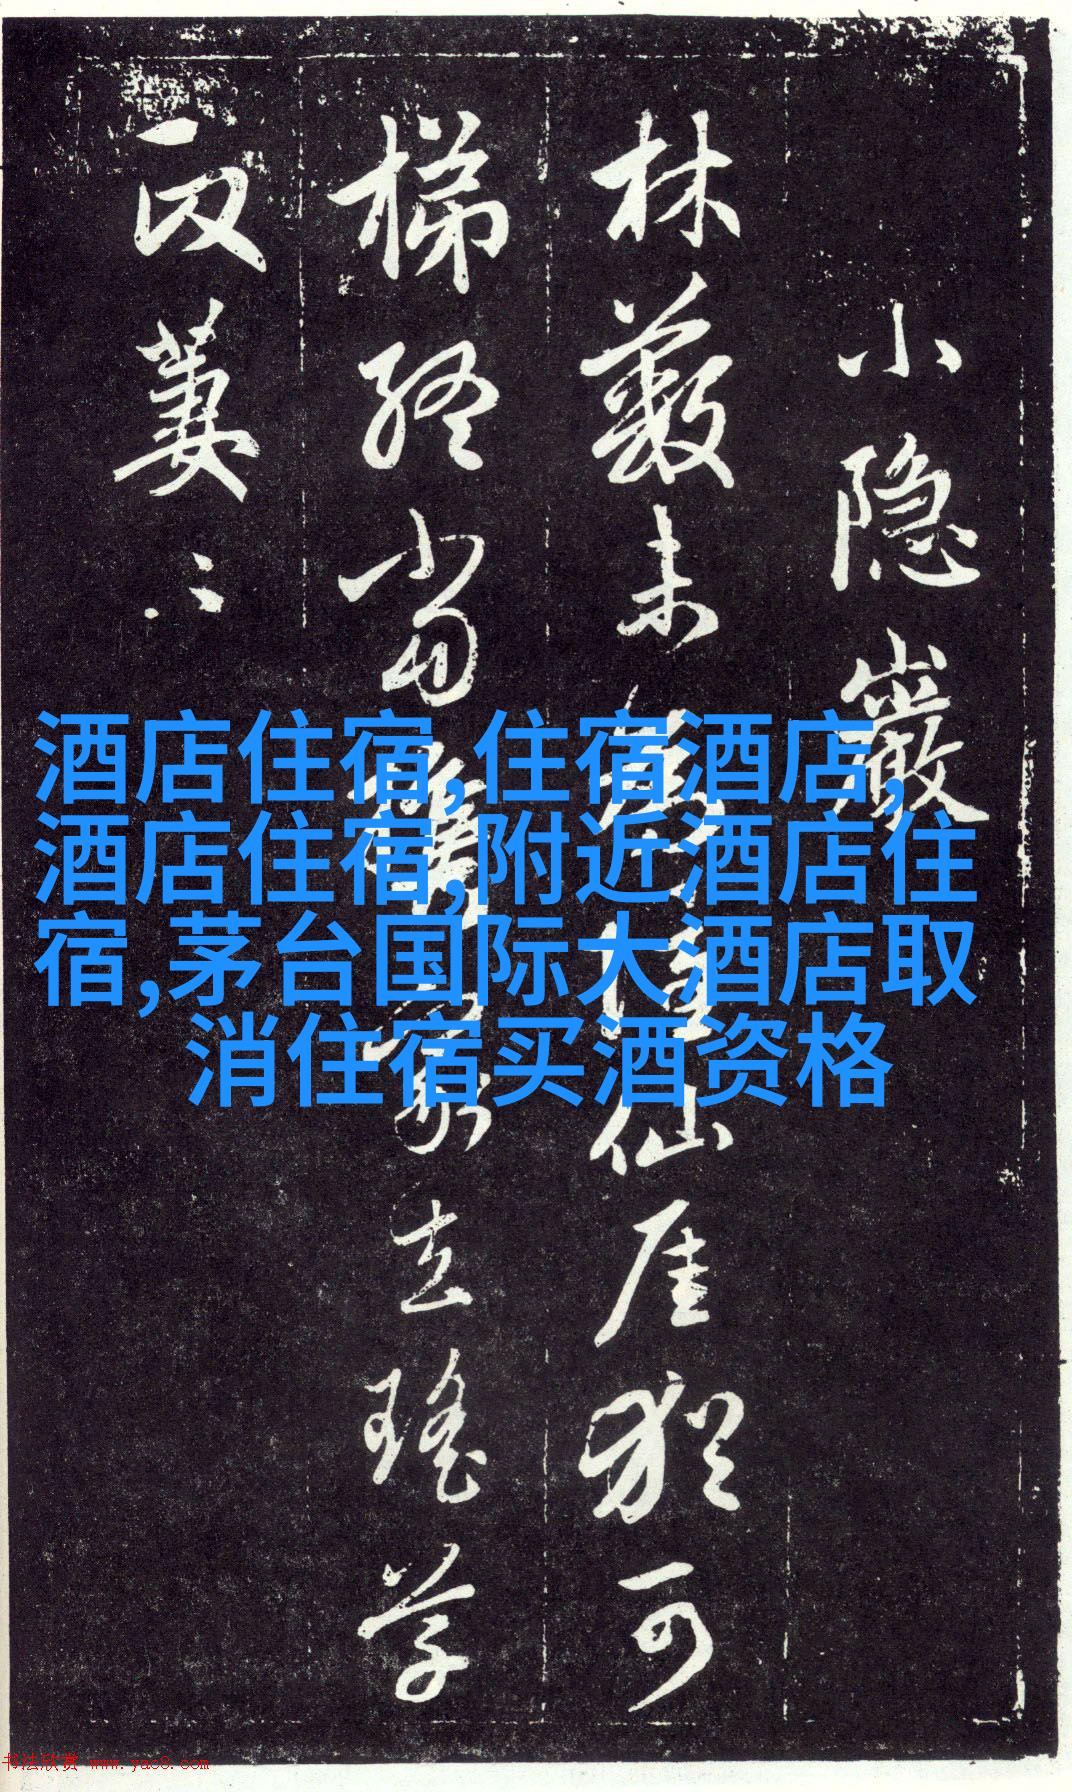 小隐巖
林薮未
仙厓猶可
梯經當
立瑤学
一叹萋〻
酒店住宿,住宿酒店,
酒店住宿,附近酒店住
宿,茅台国际大酒店取
消住宿买酒资格
书法欣赏 www.yac8.com